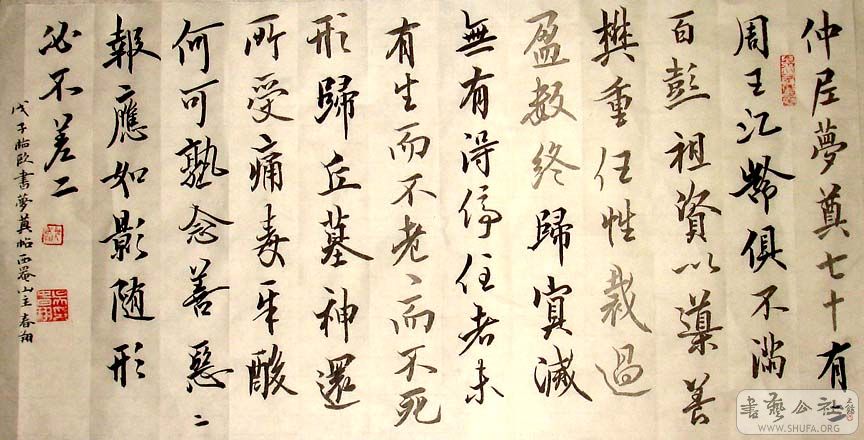 仲尼夢奠七十有二
周王九齡俱不滿
百彭祖資以導養
樊重任性裁過
盈數終歸冥滅
無有得停住者未
有生而不老〻而不死
形歸丘墓神還
所受痛毒辛酸
何可熟念善惡〻
報〻應如影随形
必不差二
戊子臨歐書夢奠帖西山主春翔
書藝公社
WWW.SHUFA.ORG